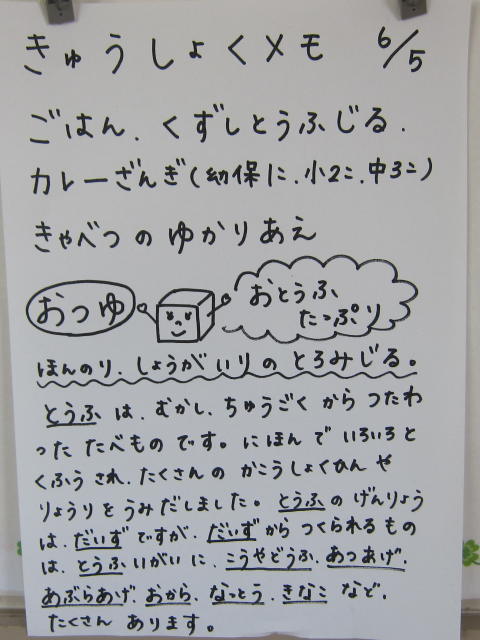 きゅうしょくメモ 6/5
ごはん、くずしとうふじる、
カレーざんぎ(幼保1こ、小2こ、中3こ)
きゃべつのゆかりあえ
おつゆ
おとうふ
たっぷり
ほんのり、しょうがいりのとろみじる。
とうふは、むかし、ちゅうごくからつたわ
ったたべものです。にほんでいろいろと
くふうされ、たくさんのかこうしょくひんや
りょうりをうみだしました。とうふのげんりょう
は、だいずですが、だいずからつくられるもの
は、とうふいがいに、こうやどうふ、あつあげ、
あぶらあげ、おから、なっとう、きなこなど、
たくさんあります。